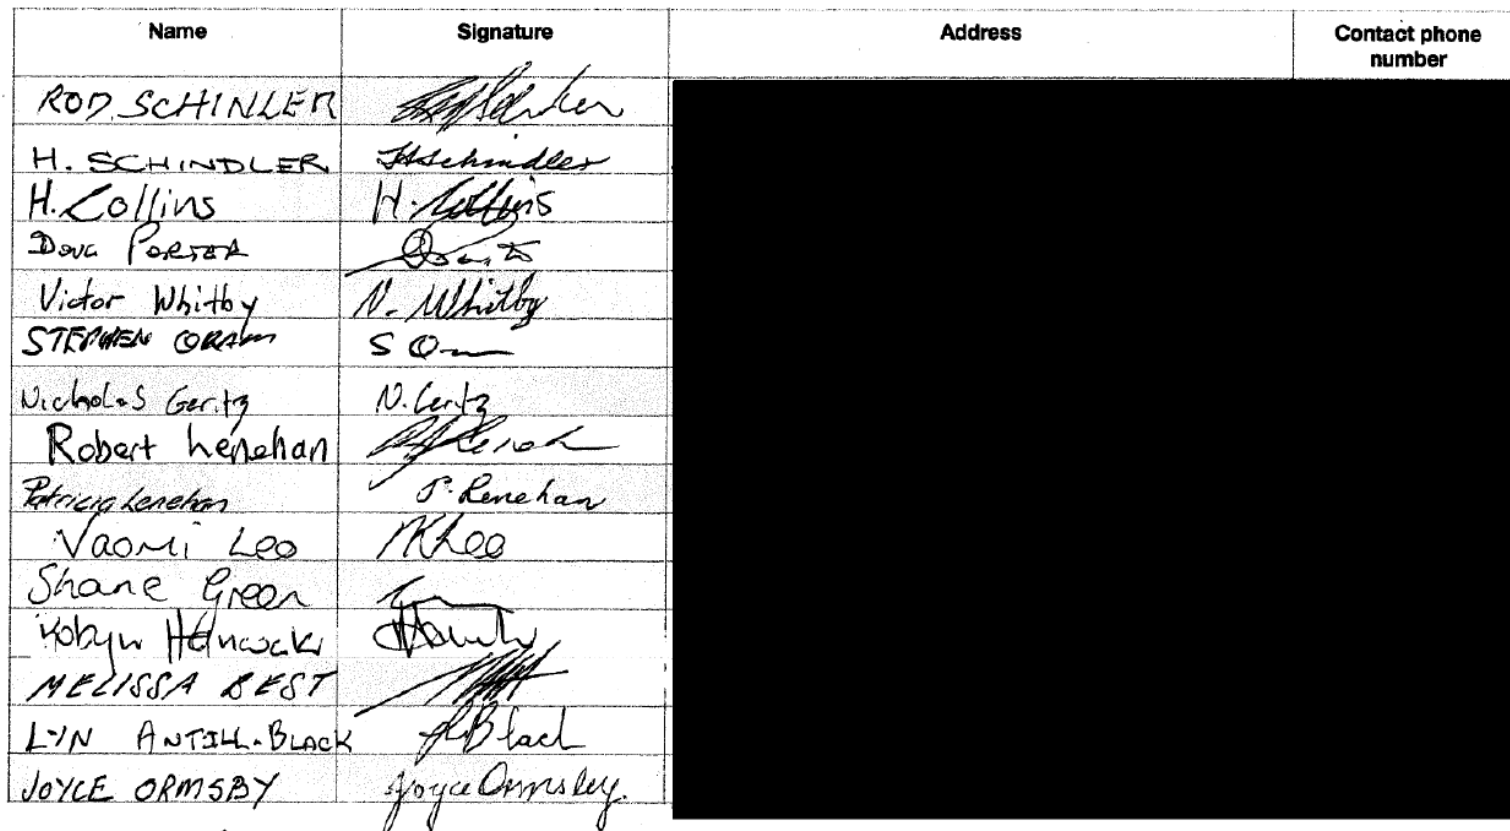 Name Signature Address Contact phone number
ROD SCHINLER
H. SCHINDLER HSchindler
H. Collins H. Collins
DOUG PORTER
Victor Whitby V. Whitby
STEPHEN ORAM S O
Nicholas Geritz N. Geritz
Robert Lenehan
Patricia Lenehan P. Lenehan
Naomi Leo NKLeo
Shane Green
Robyn Hancock
MELISSA BEST
LYN ANTILL-BLACK Black
JOYCE ORMSBY Joyce Ormsby.